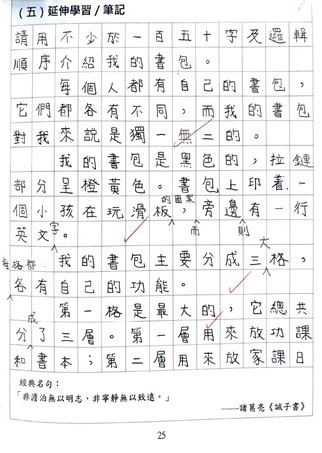 （五）延伸學習/筆記
請用不少於一百五十字及邏輯
順序介紹我的書包。
每個人都有自己的書包，
它們都各有不同，而我的書包
對我來說是獨一無二的。
我的書包是黑色的，拉鏈
部分呈橙黃色。書包上印着一
個小孩在玩滑板的圖案，而旁邊則有一行
英文字。
我的書包主要分成三大格，
每格都各有自己的功能。
第一格是最大的，它總共
分成了三層。第一層用來放功課
和書本；第二層用來放家課日
經典名句：
「非澹泊無以明志，非寧靜無以致遠。」
——諸葛亮《誡子書》
25